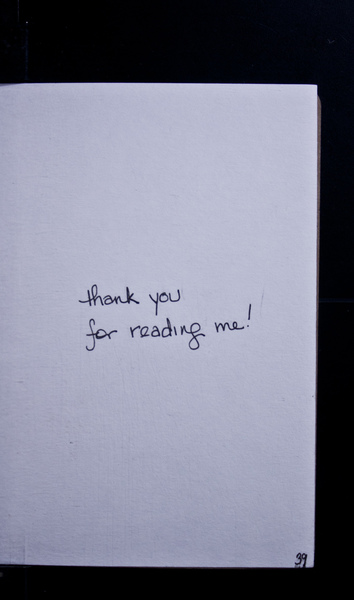 thank you
for reading me!
39